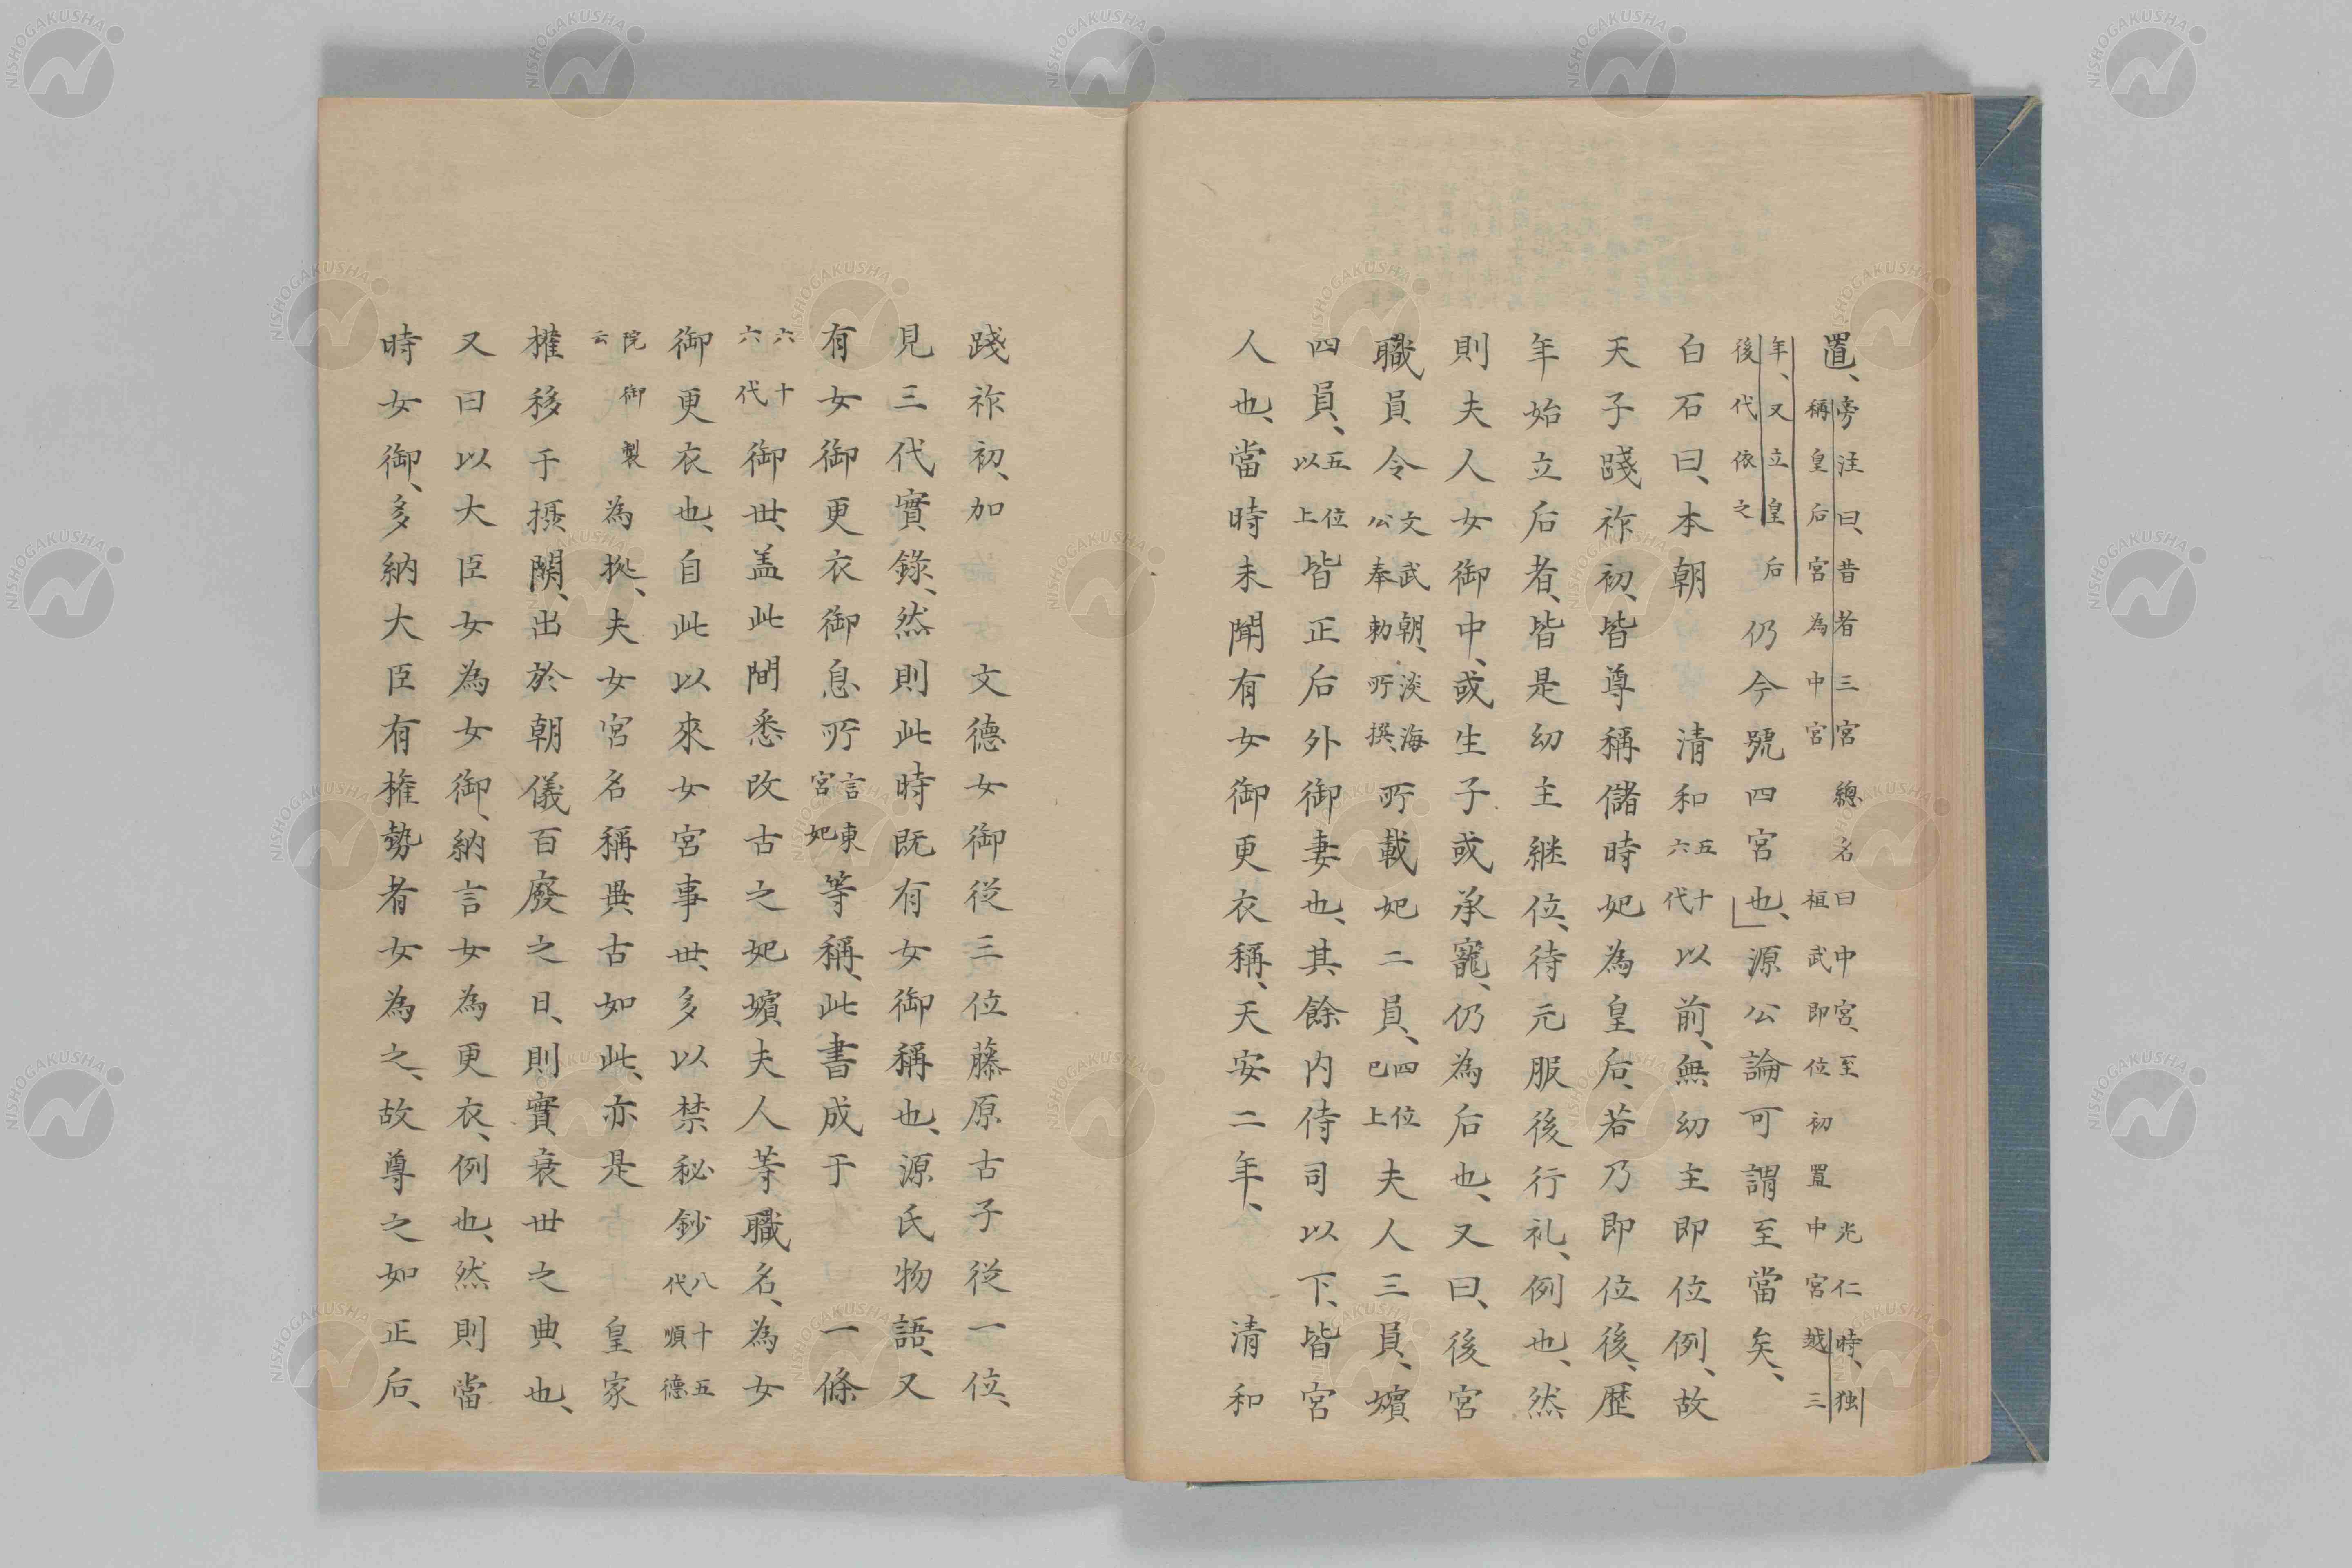 置、旁注曰、昔者三宮總名曰中宮、至光仁時、独
稱皇后宮為中宮桓武即位初置中宮越三
年、又立皇后
後代依之
仍今號四宮也、源公論可謂至當矣、
白石曰、本朝 清和五十六代以前、無幼主即位例、故
天子踐祚初、皆尊稱儲時妃為皇后、若乃即位後、歷
年始立后者、皆是幼主継位、待元服後行礼、例也、然
則夫人女御中、或生子或承寵、仍為后也、又曰、後宮
職員令文武朝、淡海公奉勅所撰、所載妃二員、四位已上夫人三員、嬪
四員、五位以上皆正后外御妻也、其餘内侍司以下、皆宮
人也、當時未聞有女御更衣稱、天安二年、 清和
踐祚初、加 文德女御從三位藤原古子從一位、
見三代實錄、然則此時既有女御稱也、源氏物語、又
有女御更衣御息所言東宮妃等稱、此書成于 一條
六十六代御世、盖此間悉改古之妃嬪夫人等職名、為女
御更衣也、自此以來女宮事世、多以禁秘鈔八十五代順德
院御製云為拠、夫女宮名稱異古如此、亦是 皇家
權移于摂関、出於朝儀百廢之日、則實衰世之典也、
又曰以大臣女為女御、納言女為更衣、例也、然則當
時女御、多納大臣有権勢者女為之、故尊之如正后、
NISHOGAKUSHA